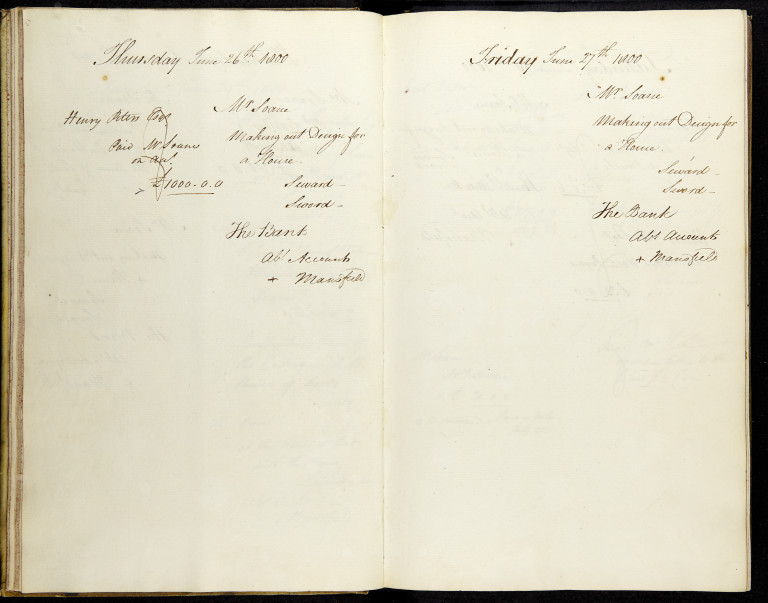 Thursday June 26th 1800
Henry Peters Esq
Paid Mr Soane
on acc.t
£1000-0.0
Mr Soane
Making out Design for
a House.
Seward -
Sword -
The Bank
Abt Accounts
+ Mansfield
Friday June 27th 1800
Mr Soane
Making out Design for
a House.
Seward -
Sword -
The Bank
Abt Accounts
+ Mansfield